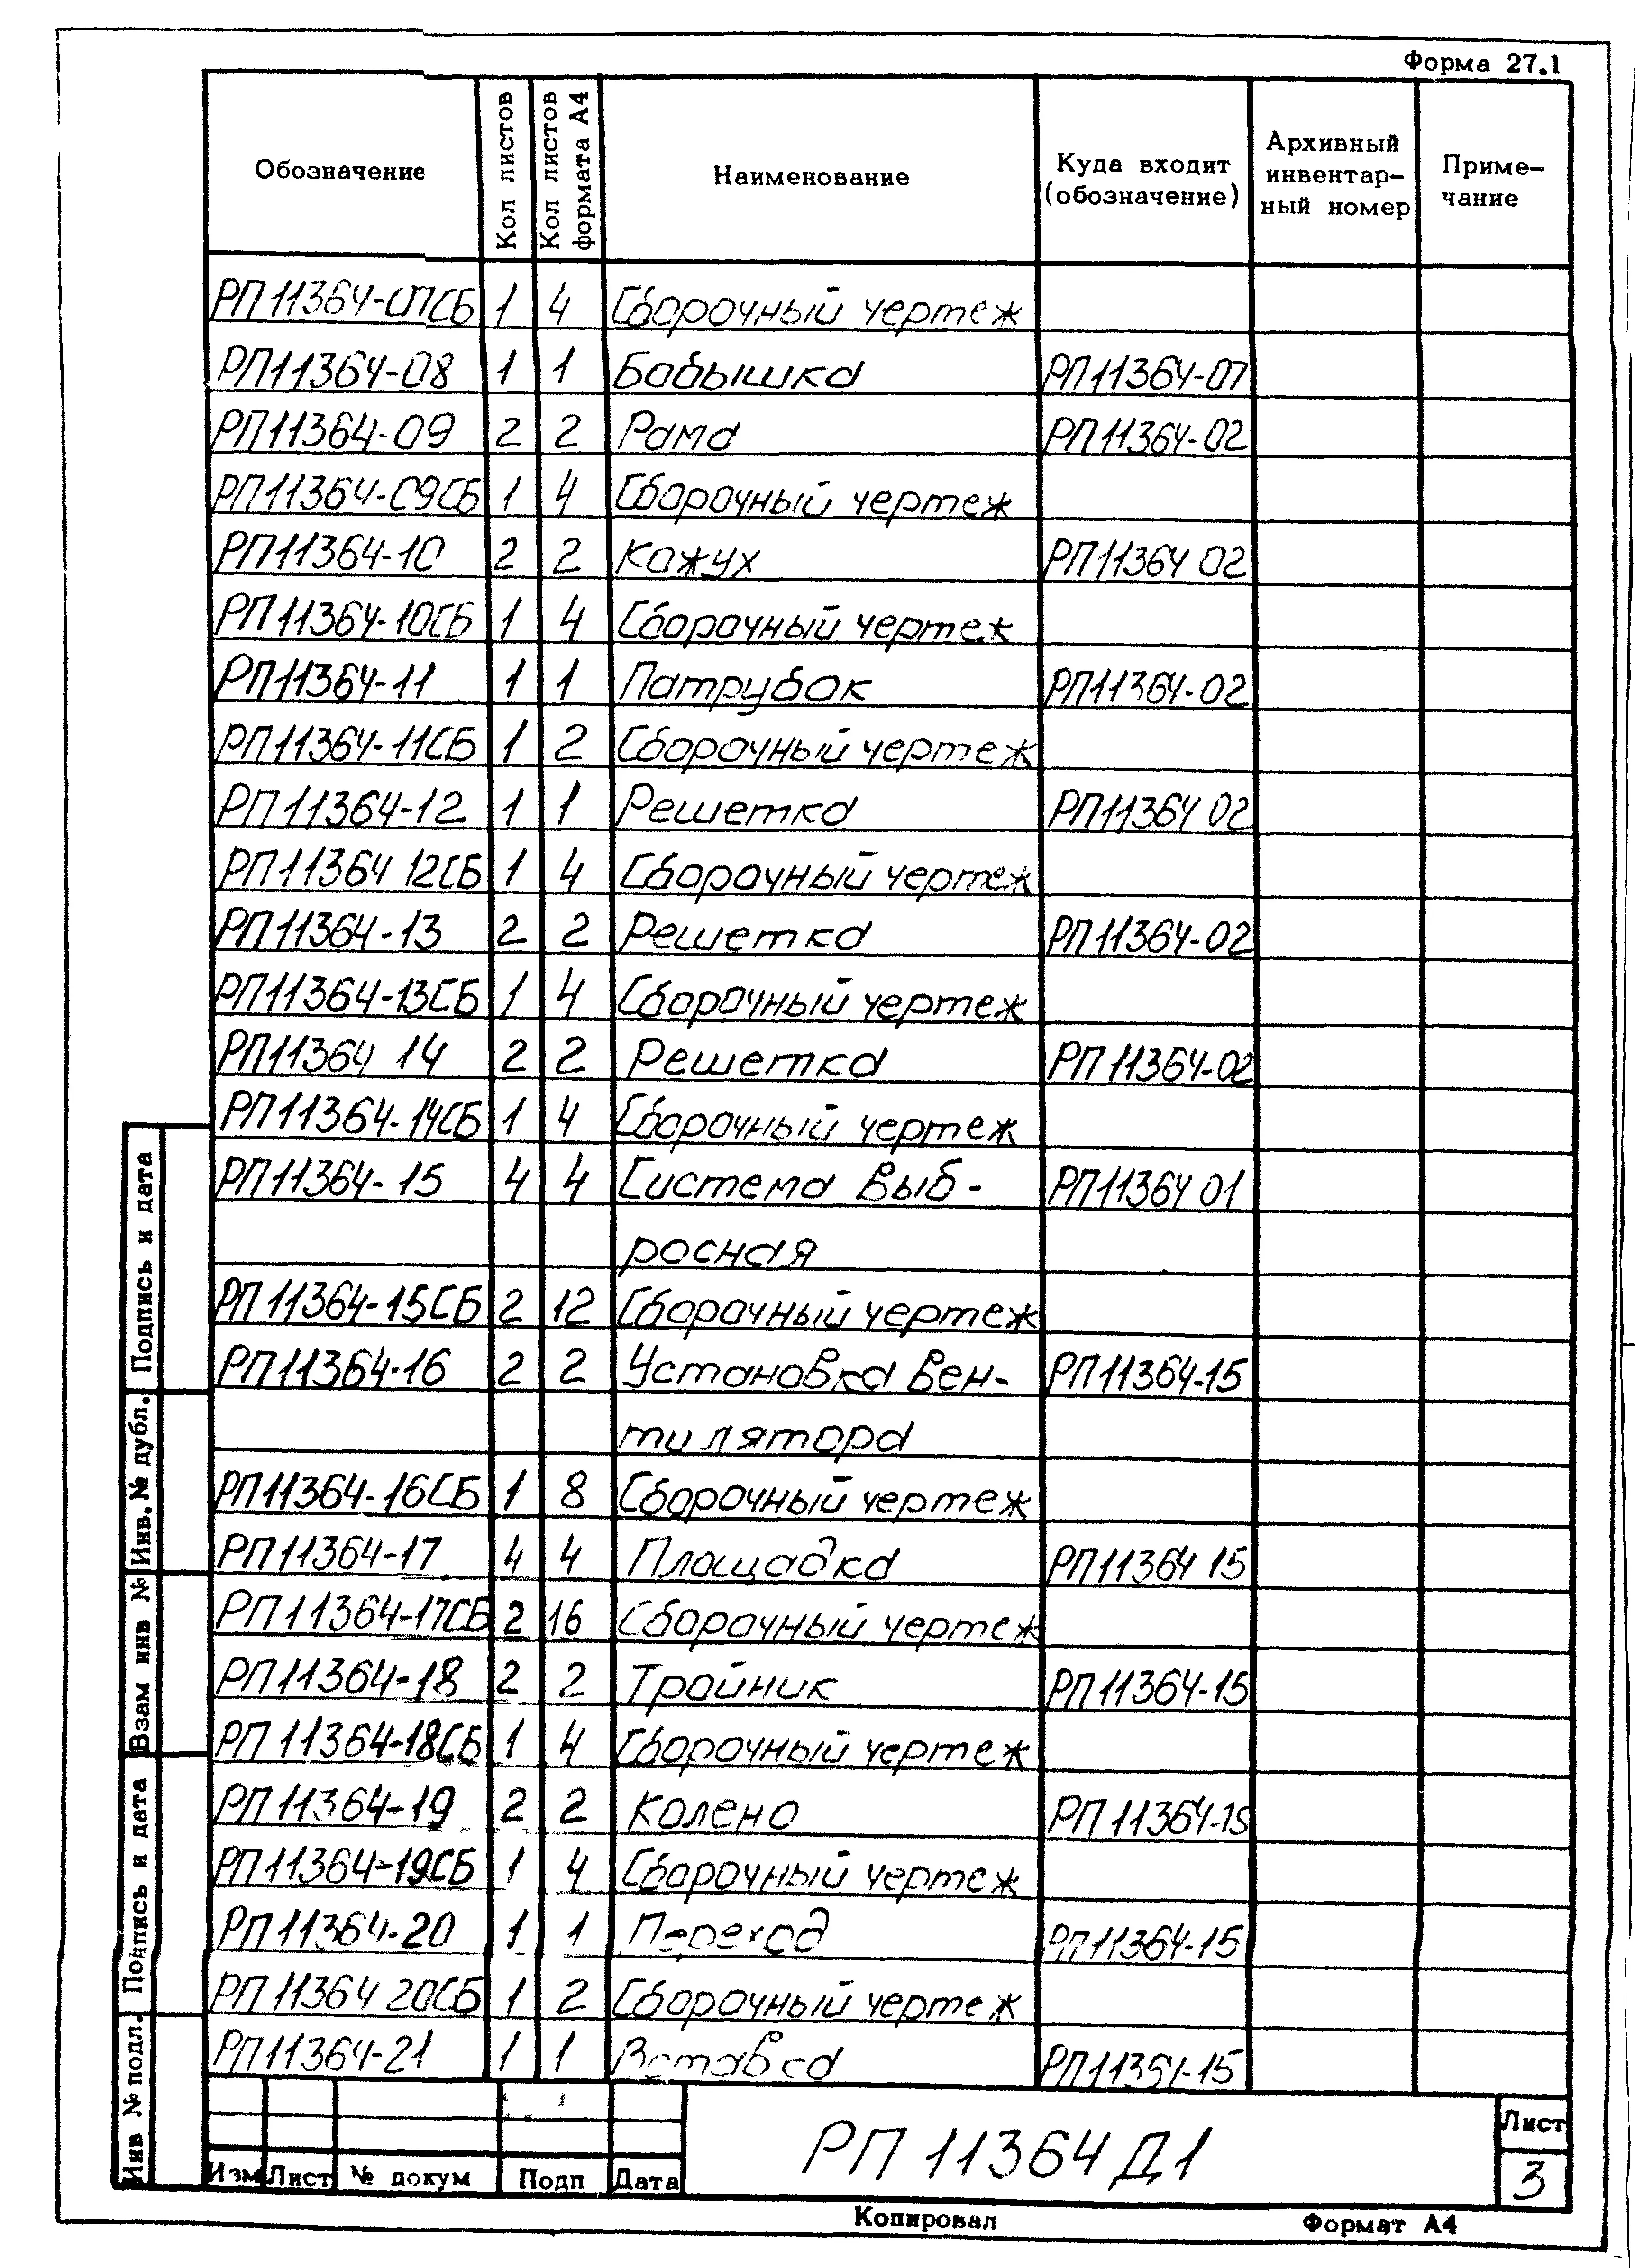 Форма 27.1
Обозначение | Кол листов | Кол листов формата А4 | Наименование | Куда входит (обозначение) | Архивный инвентар-ный номер | Приме-чание
РП11364-07СБ 1 4 Сборочный чертеж
РП11364-08 1 1 Бобышка РП11364-07
РП11364-09 2 2 Рама РП11364-02
РП11364-09СБ 1 4 Сборочный чертеж
РП11364-10 2 2 Кожух РП11364 02
РП11364-10СБ 1 4 Сборочный чертеж
РП11364-11 1 1 Патрубок РП11364-02
РП11364-11СБ 1 2 Сборочный чертеж
РП11364-12 1 1 Решетка РП11364 02
РП11364 12СБ 1 4 Сборочный чертеж
РП11364-13 2 2 Решетка РП11364-02
РП11364-13СБ 1 4 Сборочный чертеж
РП11364 14 2 2 Решетка РП11364-02
РП11364-14СБ 1 4 Сборочный чертеж
РП11364-15 4 4 Система выб- РП11364 01
росная
РП11364-15СБ 2 12 Сборочный чертеж
РП11364-16 2 2 Установка вен- РП11364-15
тилятора
РП11364-16СБ 1 8 Сборочный чертеж
РП11364-17 4 4 Площадка РП11364 15
РП11364-17СБ 2 16 Сборочный чертеж
РП11364-18 2 2 Тройник РП11364-15
РП11364-18СБ 1 4 Сборочный чертеж
РП11364-19 2 2 Колено РП11364-15
РП11364-19СБ 1 4 Сборочный чертеж
РП11364-20 1 1 Переход РП11364-15
РП11364 20СБ 1 2 Сборочный чертеж
РП11364-21 1 1 Вставка РП11364-15
Подпись и дата
Инв. № дубл.
Взам инв №
Подпись и дата
Инв № подл.
Изм Лист № докум Подп Дата
РП 11364 Д1
Лист
3
Копировал Формат А4